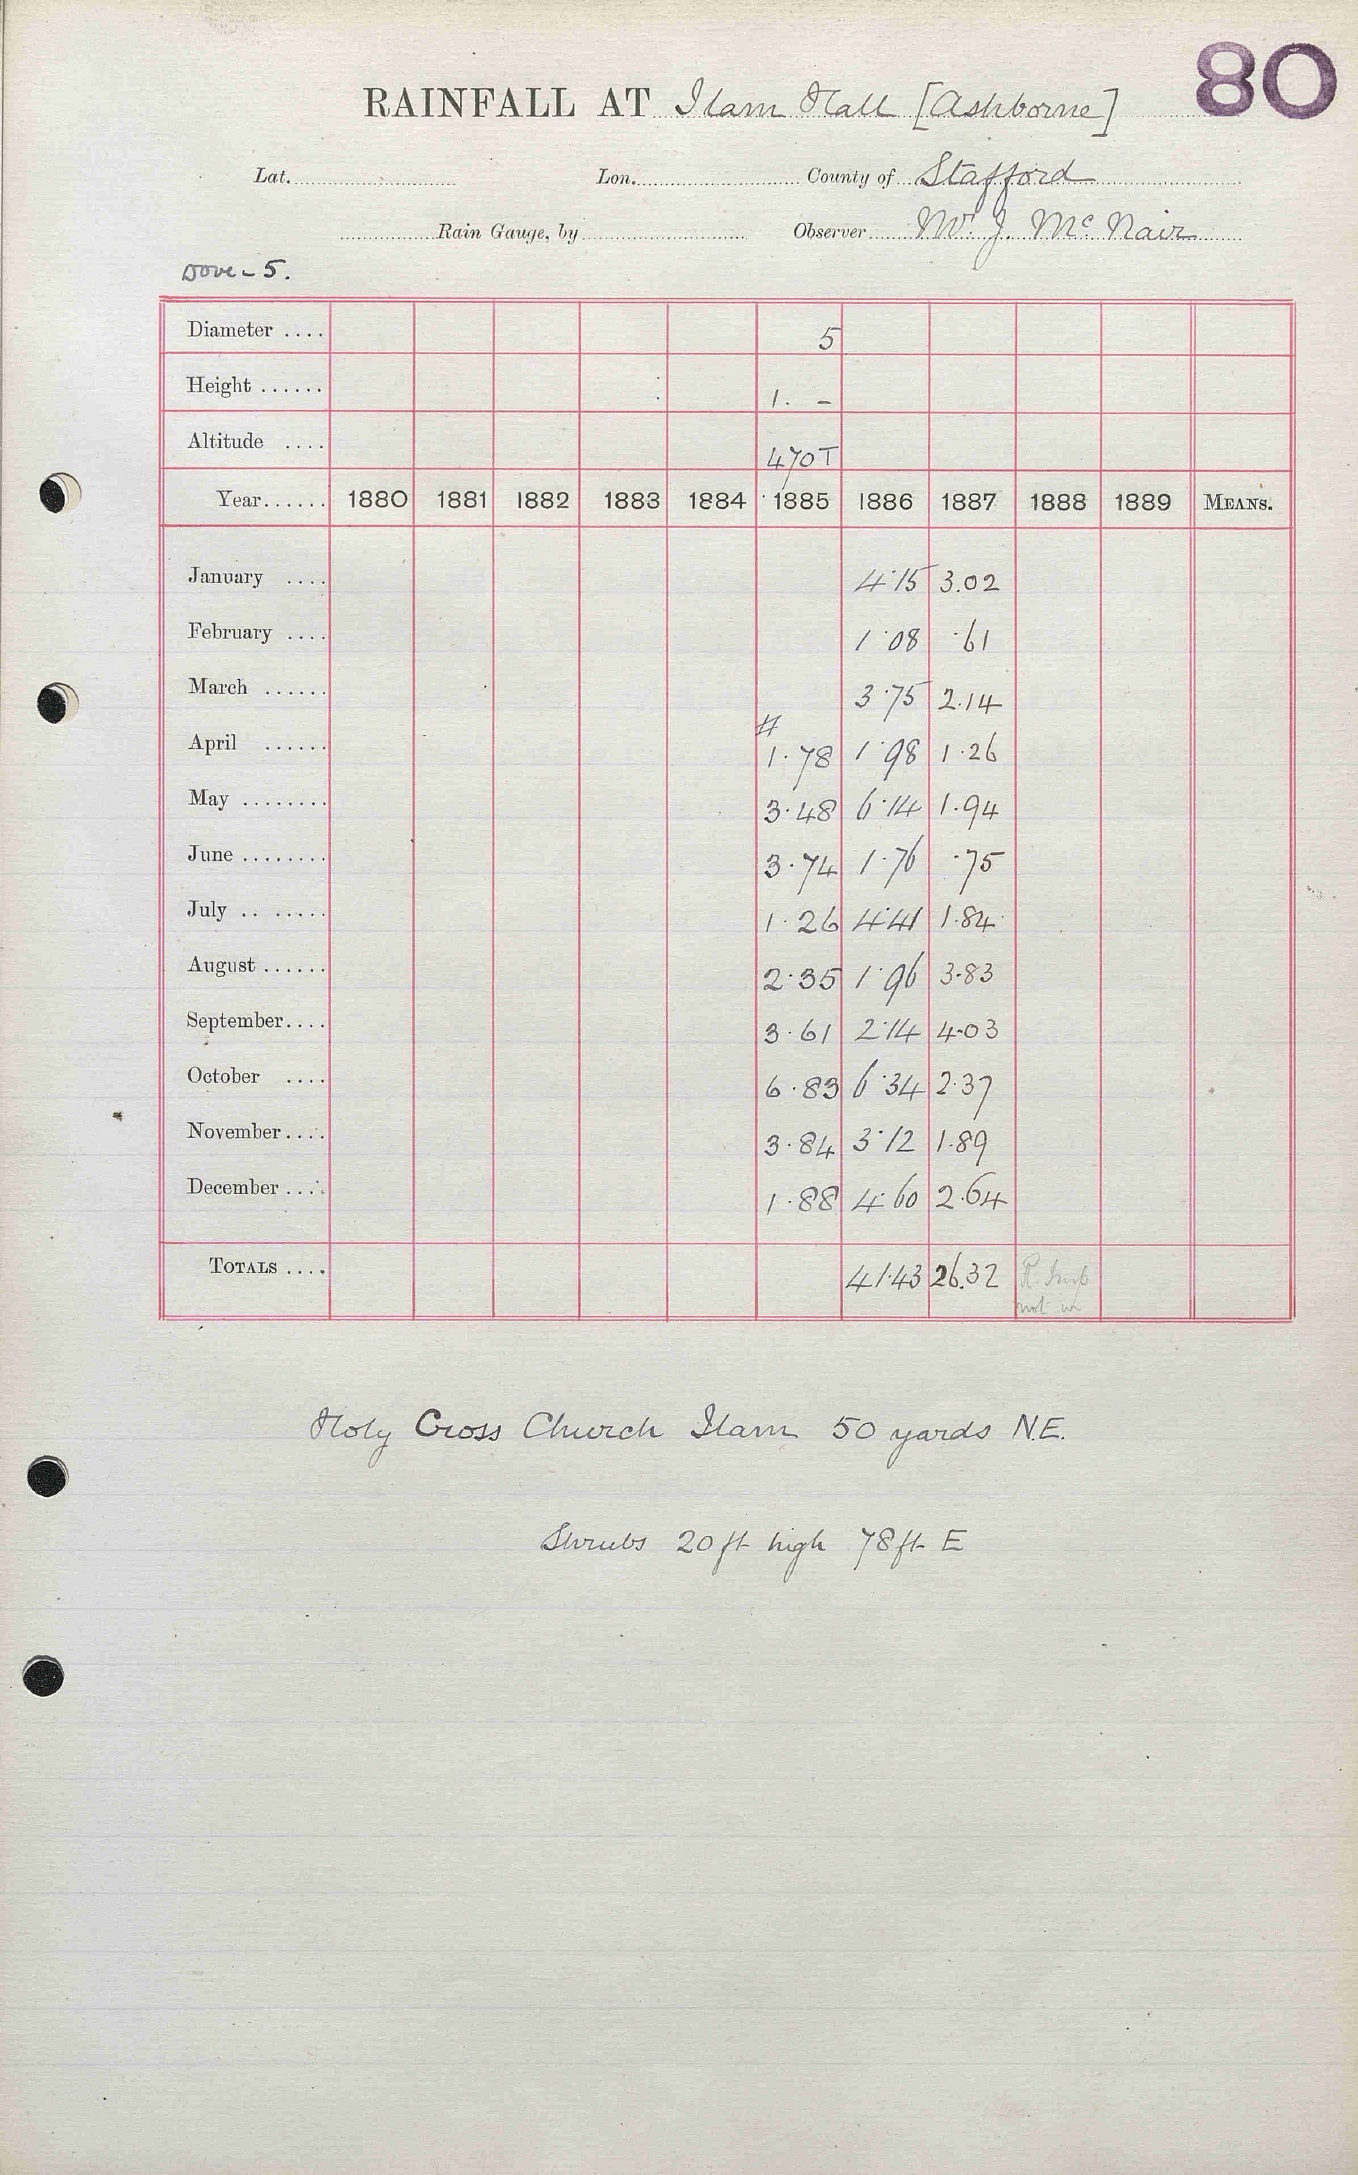 80
RAINFALL AT Ilam Hall [Ashborne]
Lat. Lon. County of Stafford
Rain Gauge, by Observer Mr J. Mc Nair
Dove - 5.
Diameter .... 5
Height ...... 1. -
Altitude .... 470T
Year...... 1880 1881 1882 1883 1884 1885 1886 1887 1888 1889 MEANS.
January .... 4.15 3.02
February .... 1.08 .61
March ...... 3.75 2.14
April ...... 1.78 1.98 1.26
May ........ 3.48 6.14 1.94
June ........ 3.74 1.76 .75
July .. ..... 1.26 4.41 1.84
August ...... 2.35 1.96 3.83
September.... 3.61 2.14 4.03
October .... 6.83 6.34 2.37
November.... 3.84 3.12 1.89
December .... 1.88 4.60 2.64
TOTALS .... 41.43 26.32
not in
Holy Cross Church Ilam 50 yards N.E.
Shrubs 20 ft high 78 ft E